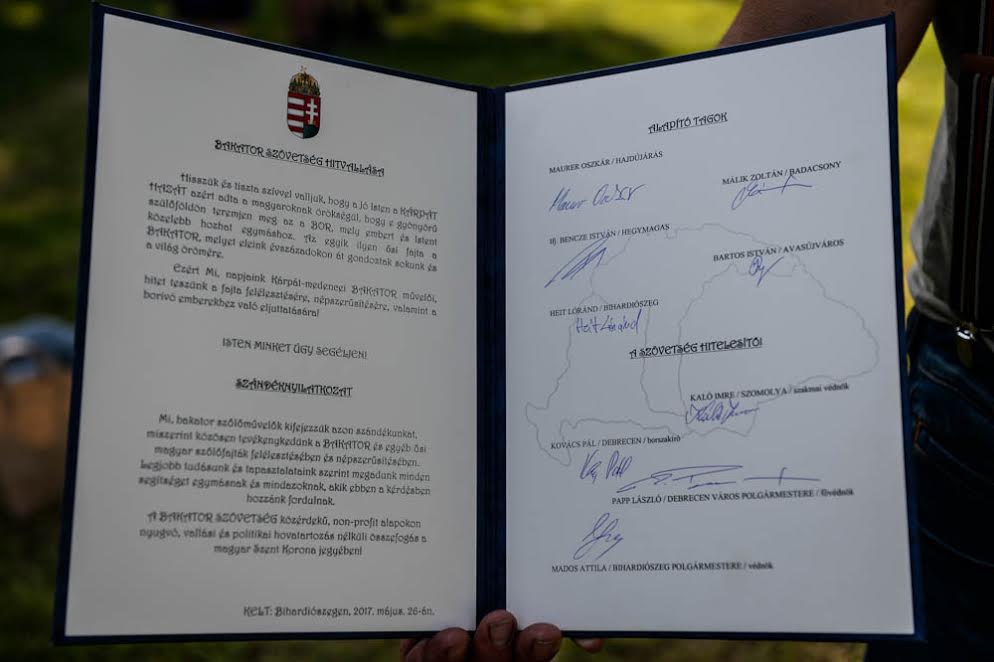 BAKATOR SZÖVETSÉG HITVALLÁSA
Hisszük és tiszta szívvel valljuk, hogy a jó Isten a KÁRPÁT
HAZÁT azért adta a magyaroknak örökségül, hogy e gyönyörű
szülőföldön teremjen meg az a BOR, mely embert és Istent
közelebb hozhat egymáshoz. Az egyik ilyen ősi fajta a
BAKATOR, melyet eleink évszázadokon át gondoztak sokunk és
a világ örömére.
Ezért Mi, napjaink Kárpát-medencei BAKATOR művelői,
hitet teszünk a fajta felélesztésére, népszerűsítésére, valamint a
borívó emberekhez való eljuttatására!
ISTEN MINKET ÚGY SEGÉLJEN!
SZÁNDÉKNYILATKOZAT
Mi, bakator szőlőművelők kifejezzük azon szándékunkat,
miszerint közösen tevékenykedünk a BAKATOR és egyéb ősi
magyar szőlőfajták felélesztésében és népszerűsítésében.
Legjobb tudásunk és tapasztalataink szerint megadunk minden
segítséget egymásnak és mindazoknak, akik ebben a kérdésben
hozzánk fordulnak.
A BAKATOR SZÖVETSÉG közérdekű, non-profit alapokon
nyugvó, vallási és politikai hovatartozás nélküli összefogás a
magyar Szent Korona jegyében!
KELT: Bihardiószegen, 2017. május. 26-án.
ALAPÍTÓ TAGOK
MAURER OSZKÁR / HAJDÚJÁRÁS
Maurer Oszkár
MÁLIK ZOLTÁN / BADACSONY
Ifj. BENCZE ISTVÁN / HEGYMAGAS
BARTOS ISTVÁN / AVASÚJVÁROS
HEIT LÓRÁND / BIHARDIÓSZEG
Heit Lóránd
A SZÖVETSÉG HITELESÍTŐI
KALÓ IMRE / SZOMOLYA / szakmai védnök
Kaló Imre
KOVÁCS PÁL / DEBRECEN / borszakíró
PAPP LÁSZLÓ / DEBRECEN VÁROS POLGÁRMESTERE / fővédnök
MADOS ATTILA / BIHARDIÓSZEG POLGÁRMESTERE / védnök